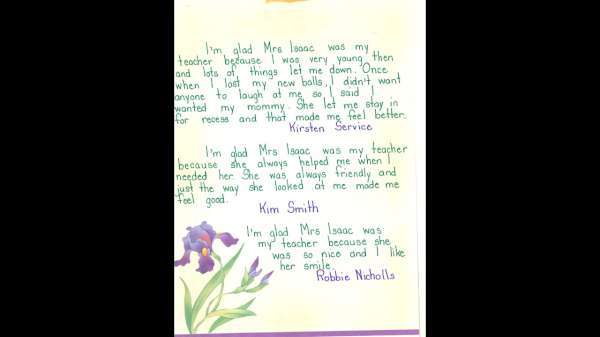 I'm glad Mrs Isaac was my
teacher because I was very young then
and lots of things let me down. Once
when I lost my new balls, I didn't want
anyone to laugh at me so I said I
wanted my mommy. She let me stay in
for recess and that made me feel better.
Kirsten Service
I'm glad Mrs Isaac was my teacher
because she always helped me when I
needed her. She was always friendly and
just the way she looked at me made me
feel good.
Kim Smith
I'm glad Mrs Isaac was
my teacher because she
was so nice and I like
her smile.
Robbie Nicholls